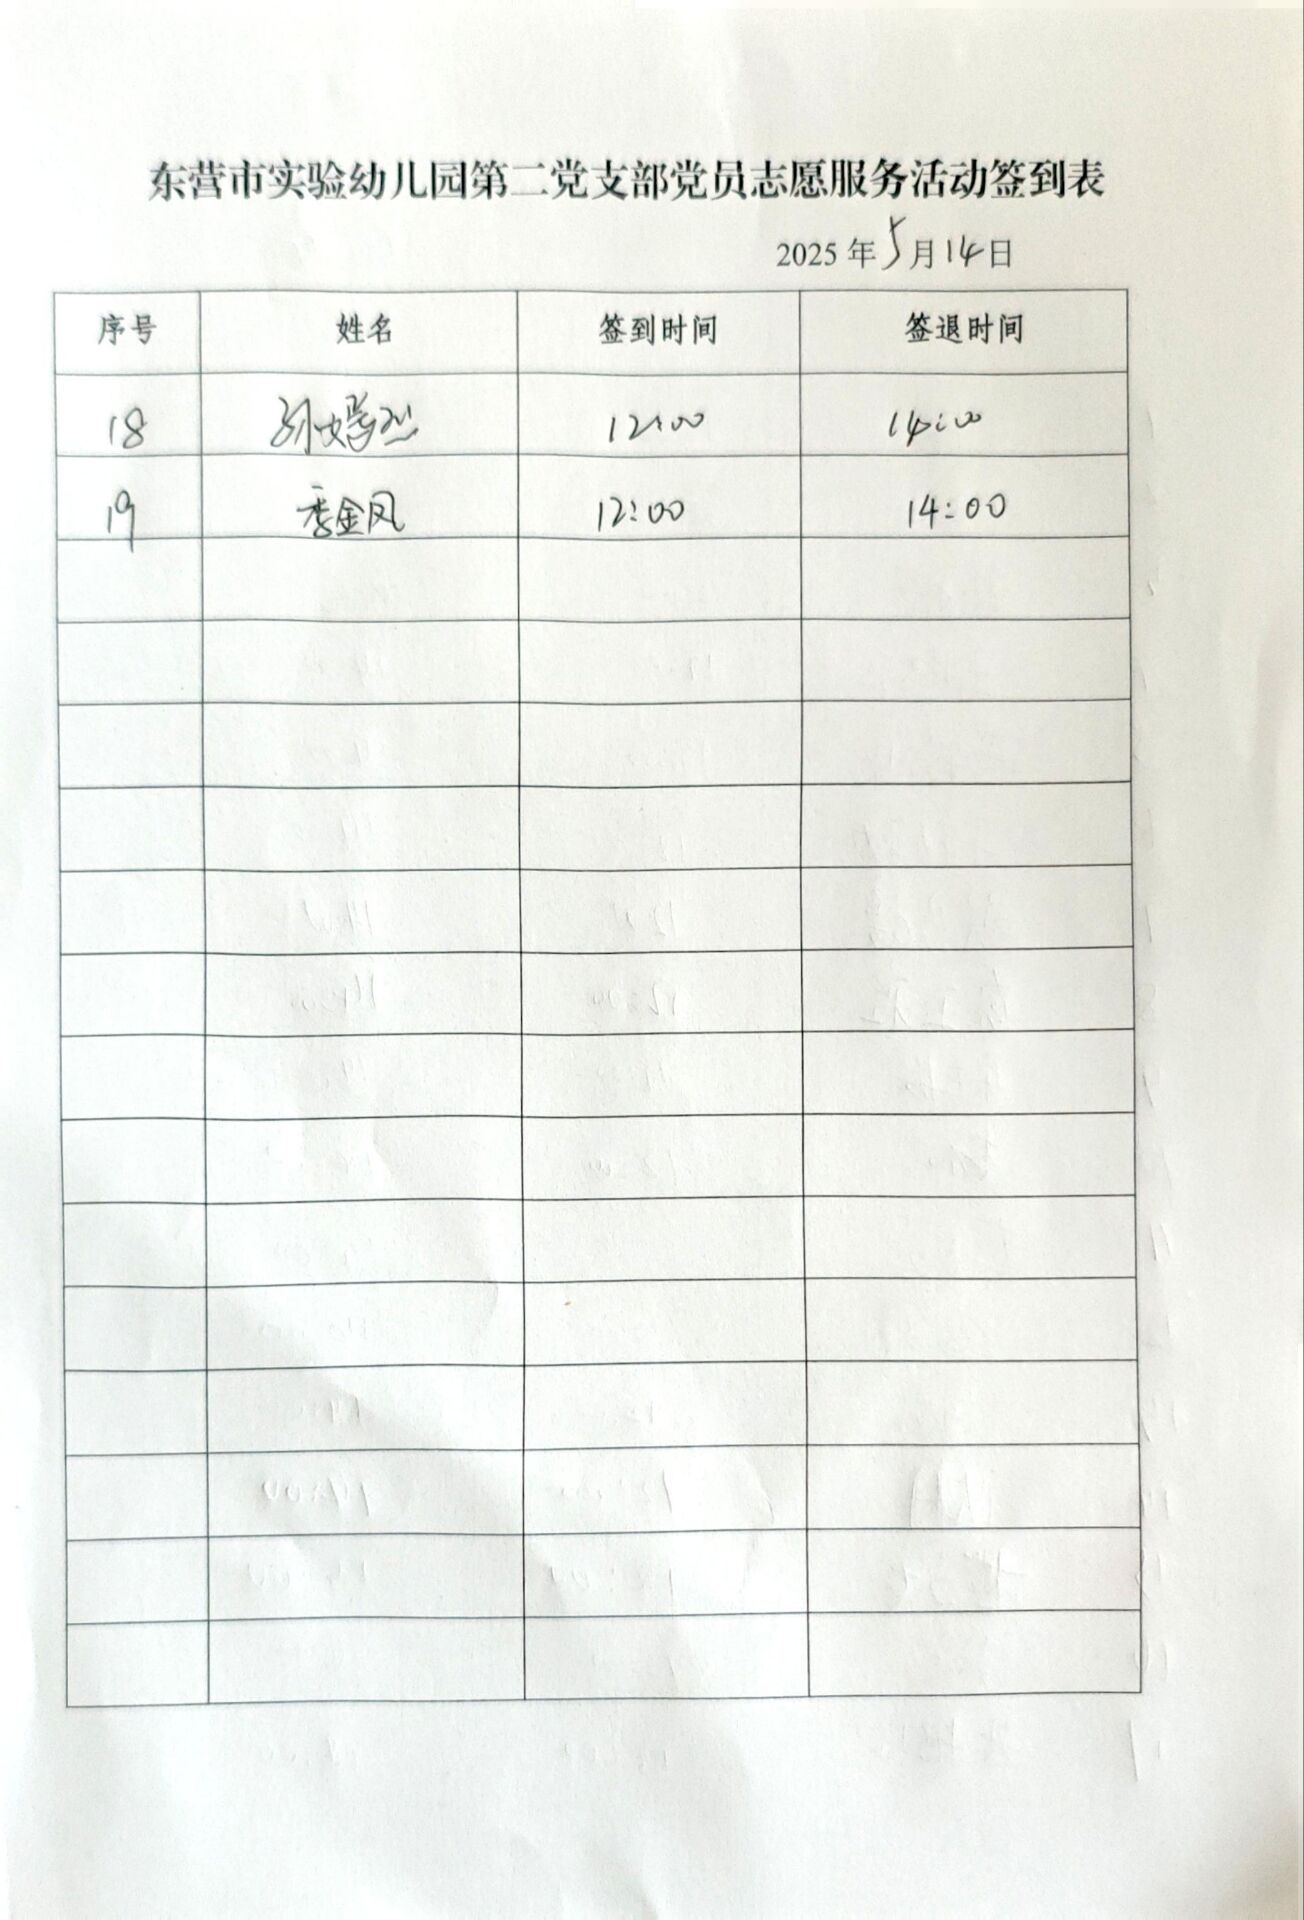 东营市实验幼儿园第二党支部党员志愿服务活动签到表
2025年5月14日
序号 姓名 签到时间 签退时间
18 孙嫣烈 12:00 14:00
19 季金凤 12:00 14:00